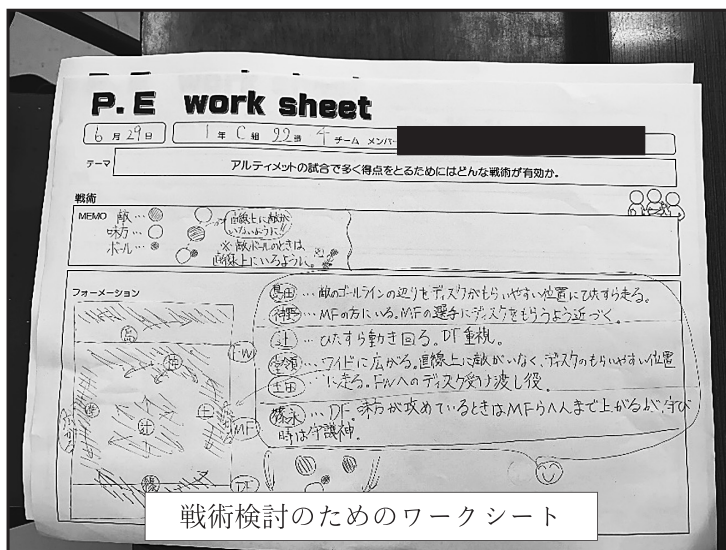 P.E work sheet
6月29日 1年C組22番 チーム メンバー
テーマ アルティメットの試合で多く得点をとるためにはどんな戦術が有効か。
戦術
MEMO 敵…
味方…
ボール…
直線上に敵が
いないように!!
※敵ボールのときは
直線上にいるように。
フォーメーション
島田…敵のゴールラインの辺りをディスクがもらいやすい位置にひたすら走る。
…MFの方にいる。MFの選手にディスクをもらうよう近づく。
辻…ひたすら動き回る。DF重視。
…ワイドに広がる。直線上に敵がいなく、ディスクのもらいやすい位置
土田 に走る。FWへのディスク受け渡し役。
篠永…DF 味方が攻めているときはMFら八人まで上がるが、守り
時は守護神。
島
FW
土
辻
MF
DF
戦術検討のためのワークシート